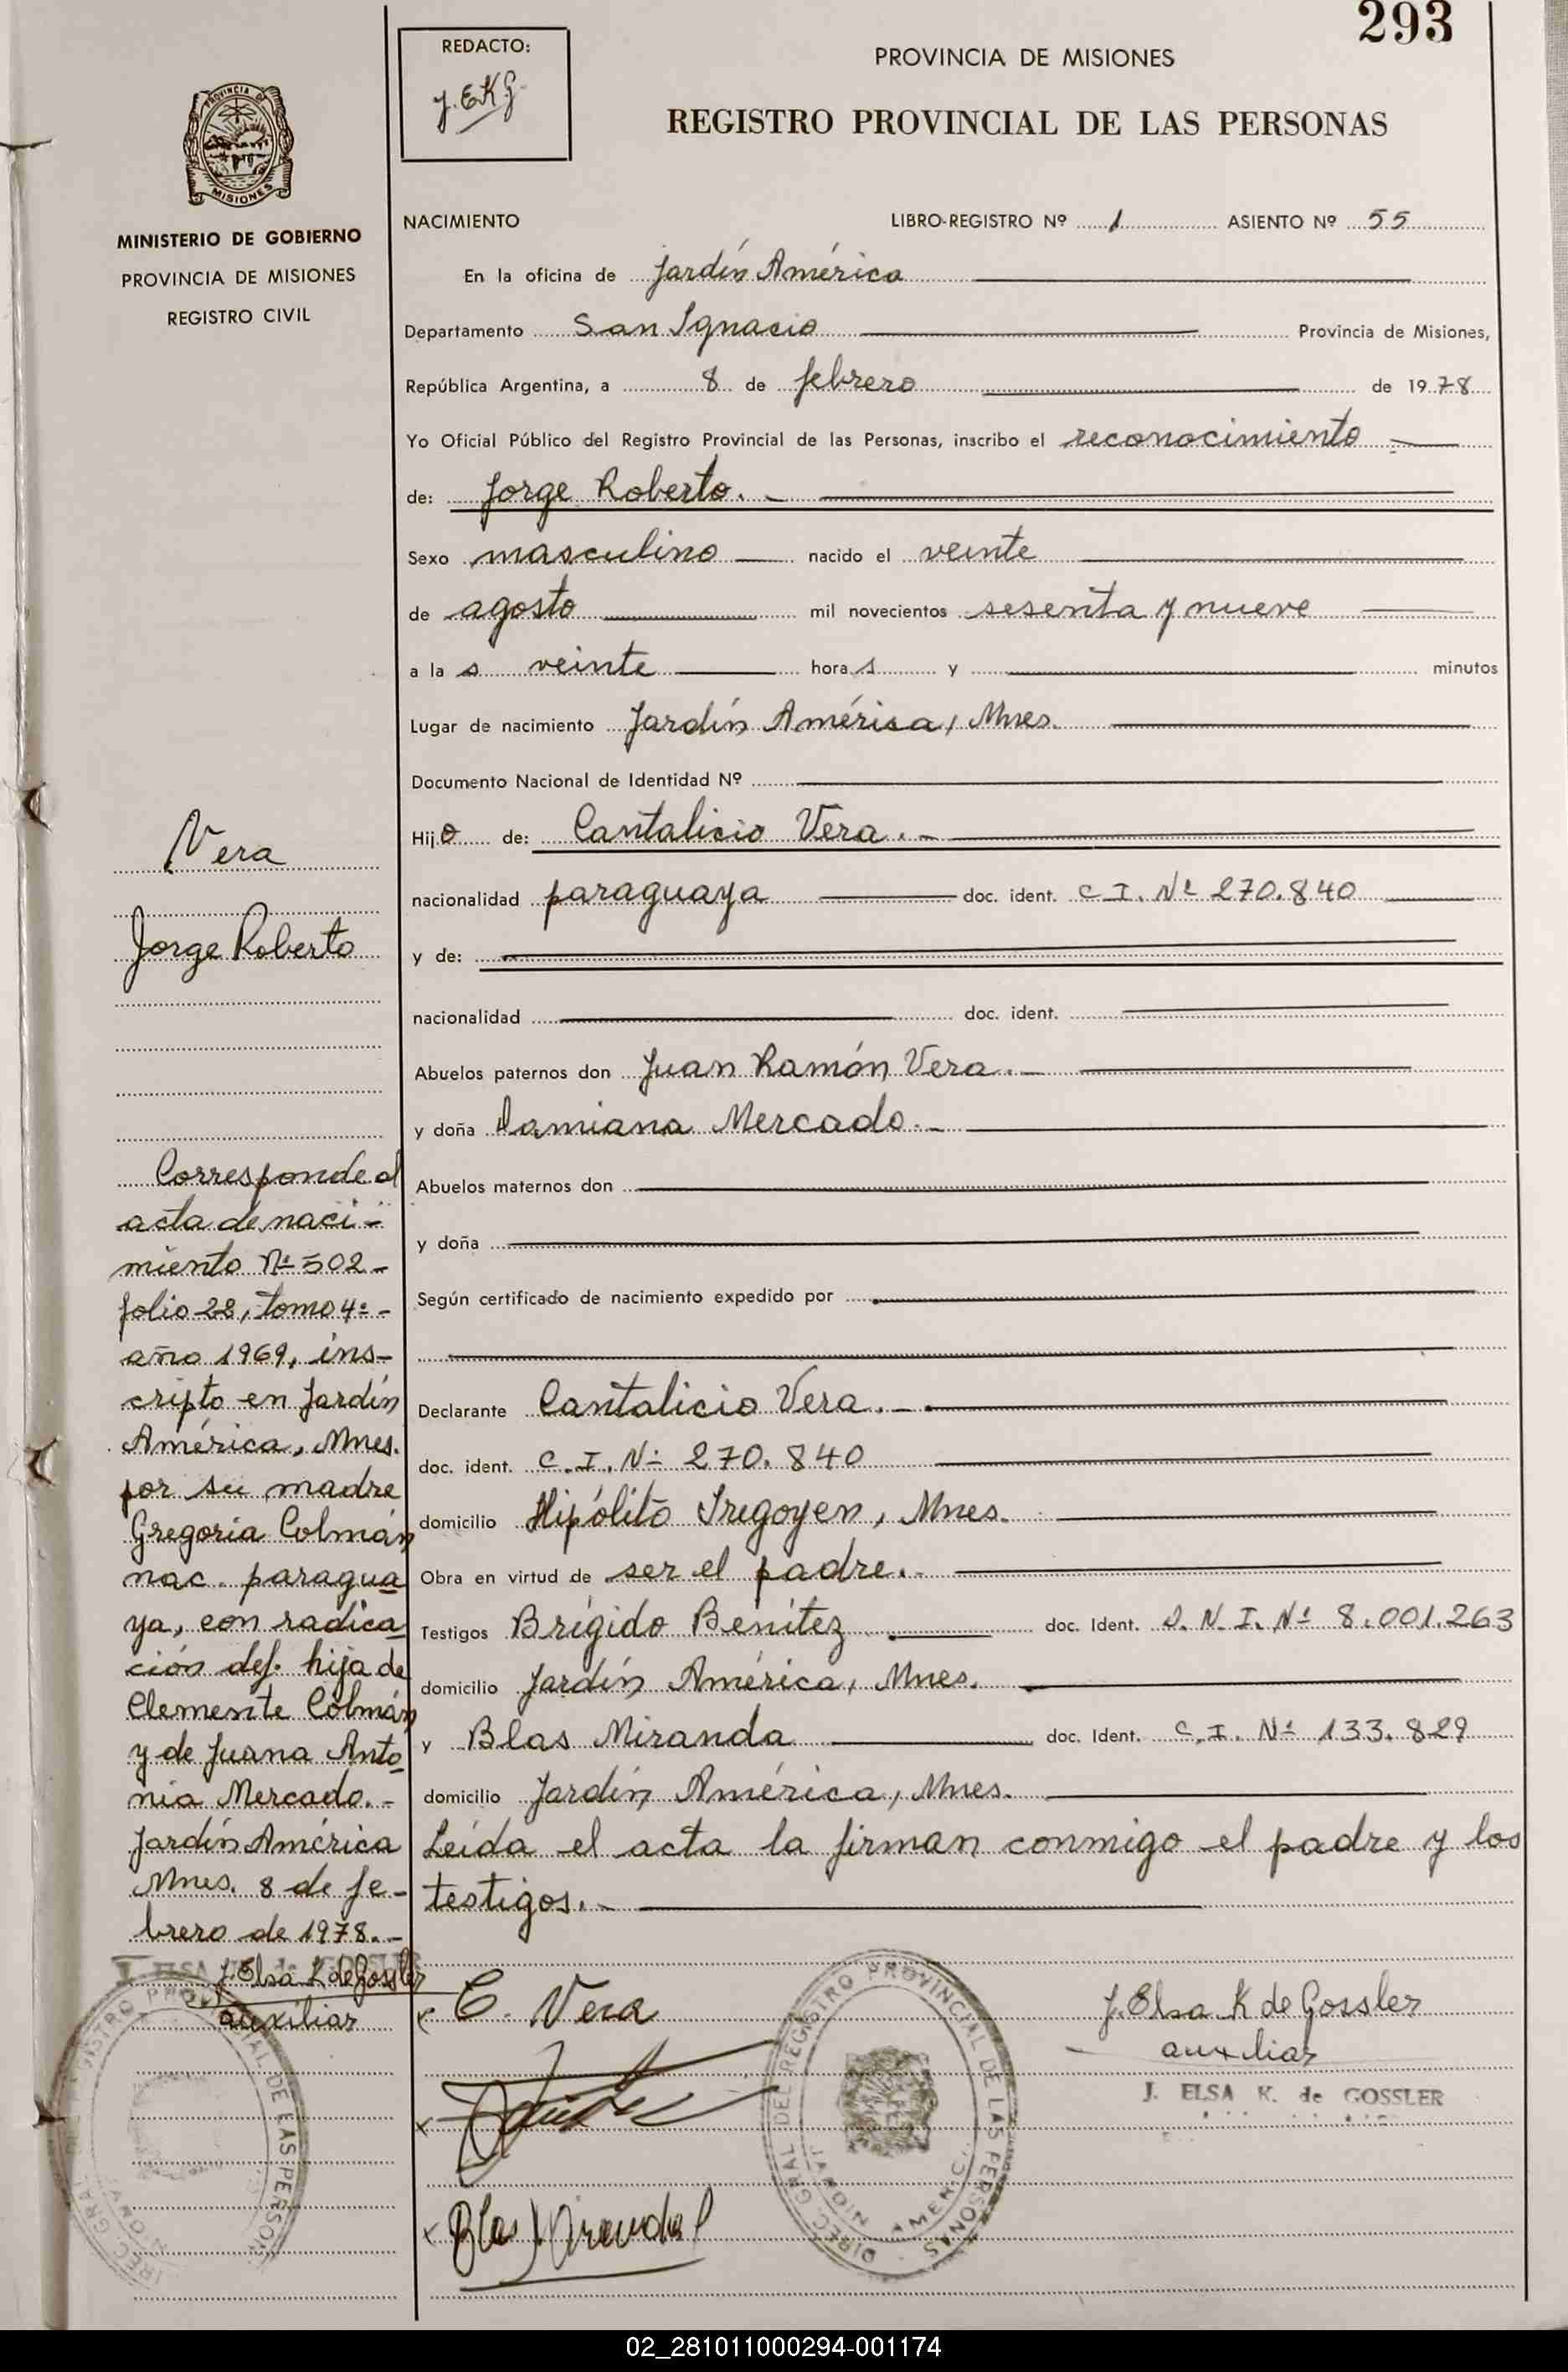 293
REDACTO:
J.E.K.G.
PROVINCIA DE MISIONES
REGISTRO PROVINCIAL DE LAS PERSONAS
PROVINCIA DE
MISIONES
MINISTERIO DE GOBIERNO
PROVINCIA DE MISIONES
REGISTRO CIVIL
NACIMIENTO LIBRO-REGISTRO Nº 1 ASIENTO Nº 55
En la oficina de Jardín América
Departamento San Ignacio Provincia de Misiones,
República Argentina, a 8 de febrero de 1978
Yo Oficial Público del Registro Provincial de las Personas, inscribo el reconocimiento
de: Jorge Roberto.
Sexo masculino nacido el veinte
de agosto mil novecientos sesenta y nueve
a las veinte horas y minutos
Lugar de nacimiento Jardín América, Mnes.
Documento Nacional de Identidad Nº
Hijo de: Cantalicio Vera.
nacionalidad paraguaya doc. ident. C.I. Nº 270.840
y de:
nacionalidad doc. ident.
Abuelos paternos don Juan Ramón Vera.
y doña Damiana Mercado.
Abuelos maternos don
y doña
Según certificado de nacimiento expedido por
Declarante Cantalicio Vera.
doc. ident. C.I. Nº 270.840
domicilio Hipólito Iregoyen, Mnes.
Obra en virtud de ser el padre.
Testigos Brígido Benítez doc. Ident. D.N.I. Nº 8.001.263
domicilio Jardín América, Mnes.
y Blas Miranda doc. Ident. C.I. Nº 133.829
domicilio Jardín América, Mnes.
Leída el acta la firman conmigo el padre y los
testigos.
C. Vera
J. Elsa K de Gossler
auxiliar
J. ELSA K. de GOSSLER
Blas Miranda
DIREC. GRAL. DEL REGISTRO PROVINCIAL DE LAS PERSONAS
JARDIN AMERICA
Vera
Jorge Roberto
Corresponde al
acta de naci-
miento Nº 502-
folio 22, tomo 4º-
año 1969, ins-
cripto en Jardín
América, Mnes.
por su madre
Gregoria Colmán
nac. paragua
ya, con radica
ción def. hija de
Clemente Colmán
y de Juana Anto
nia Mercado.-
Jardín América
Mnes. 8 de fe-
brero de 1978.-
J. Elsa K de Gossler
auxiliar
02_281011000294-001174